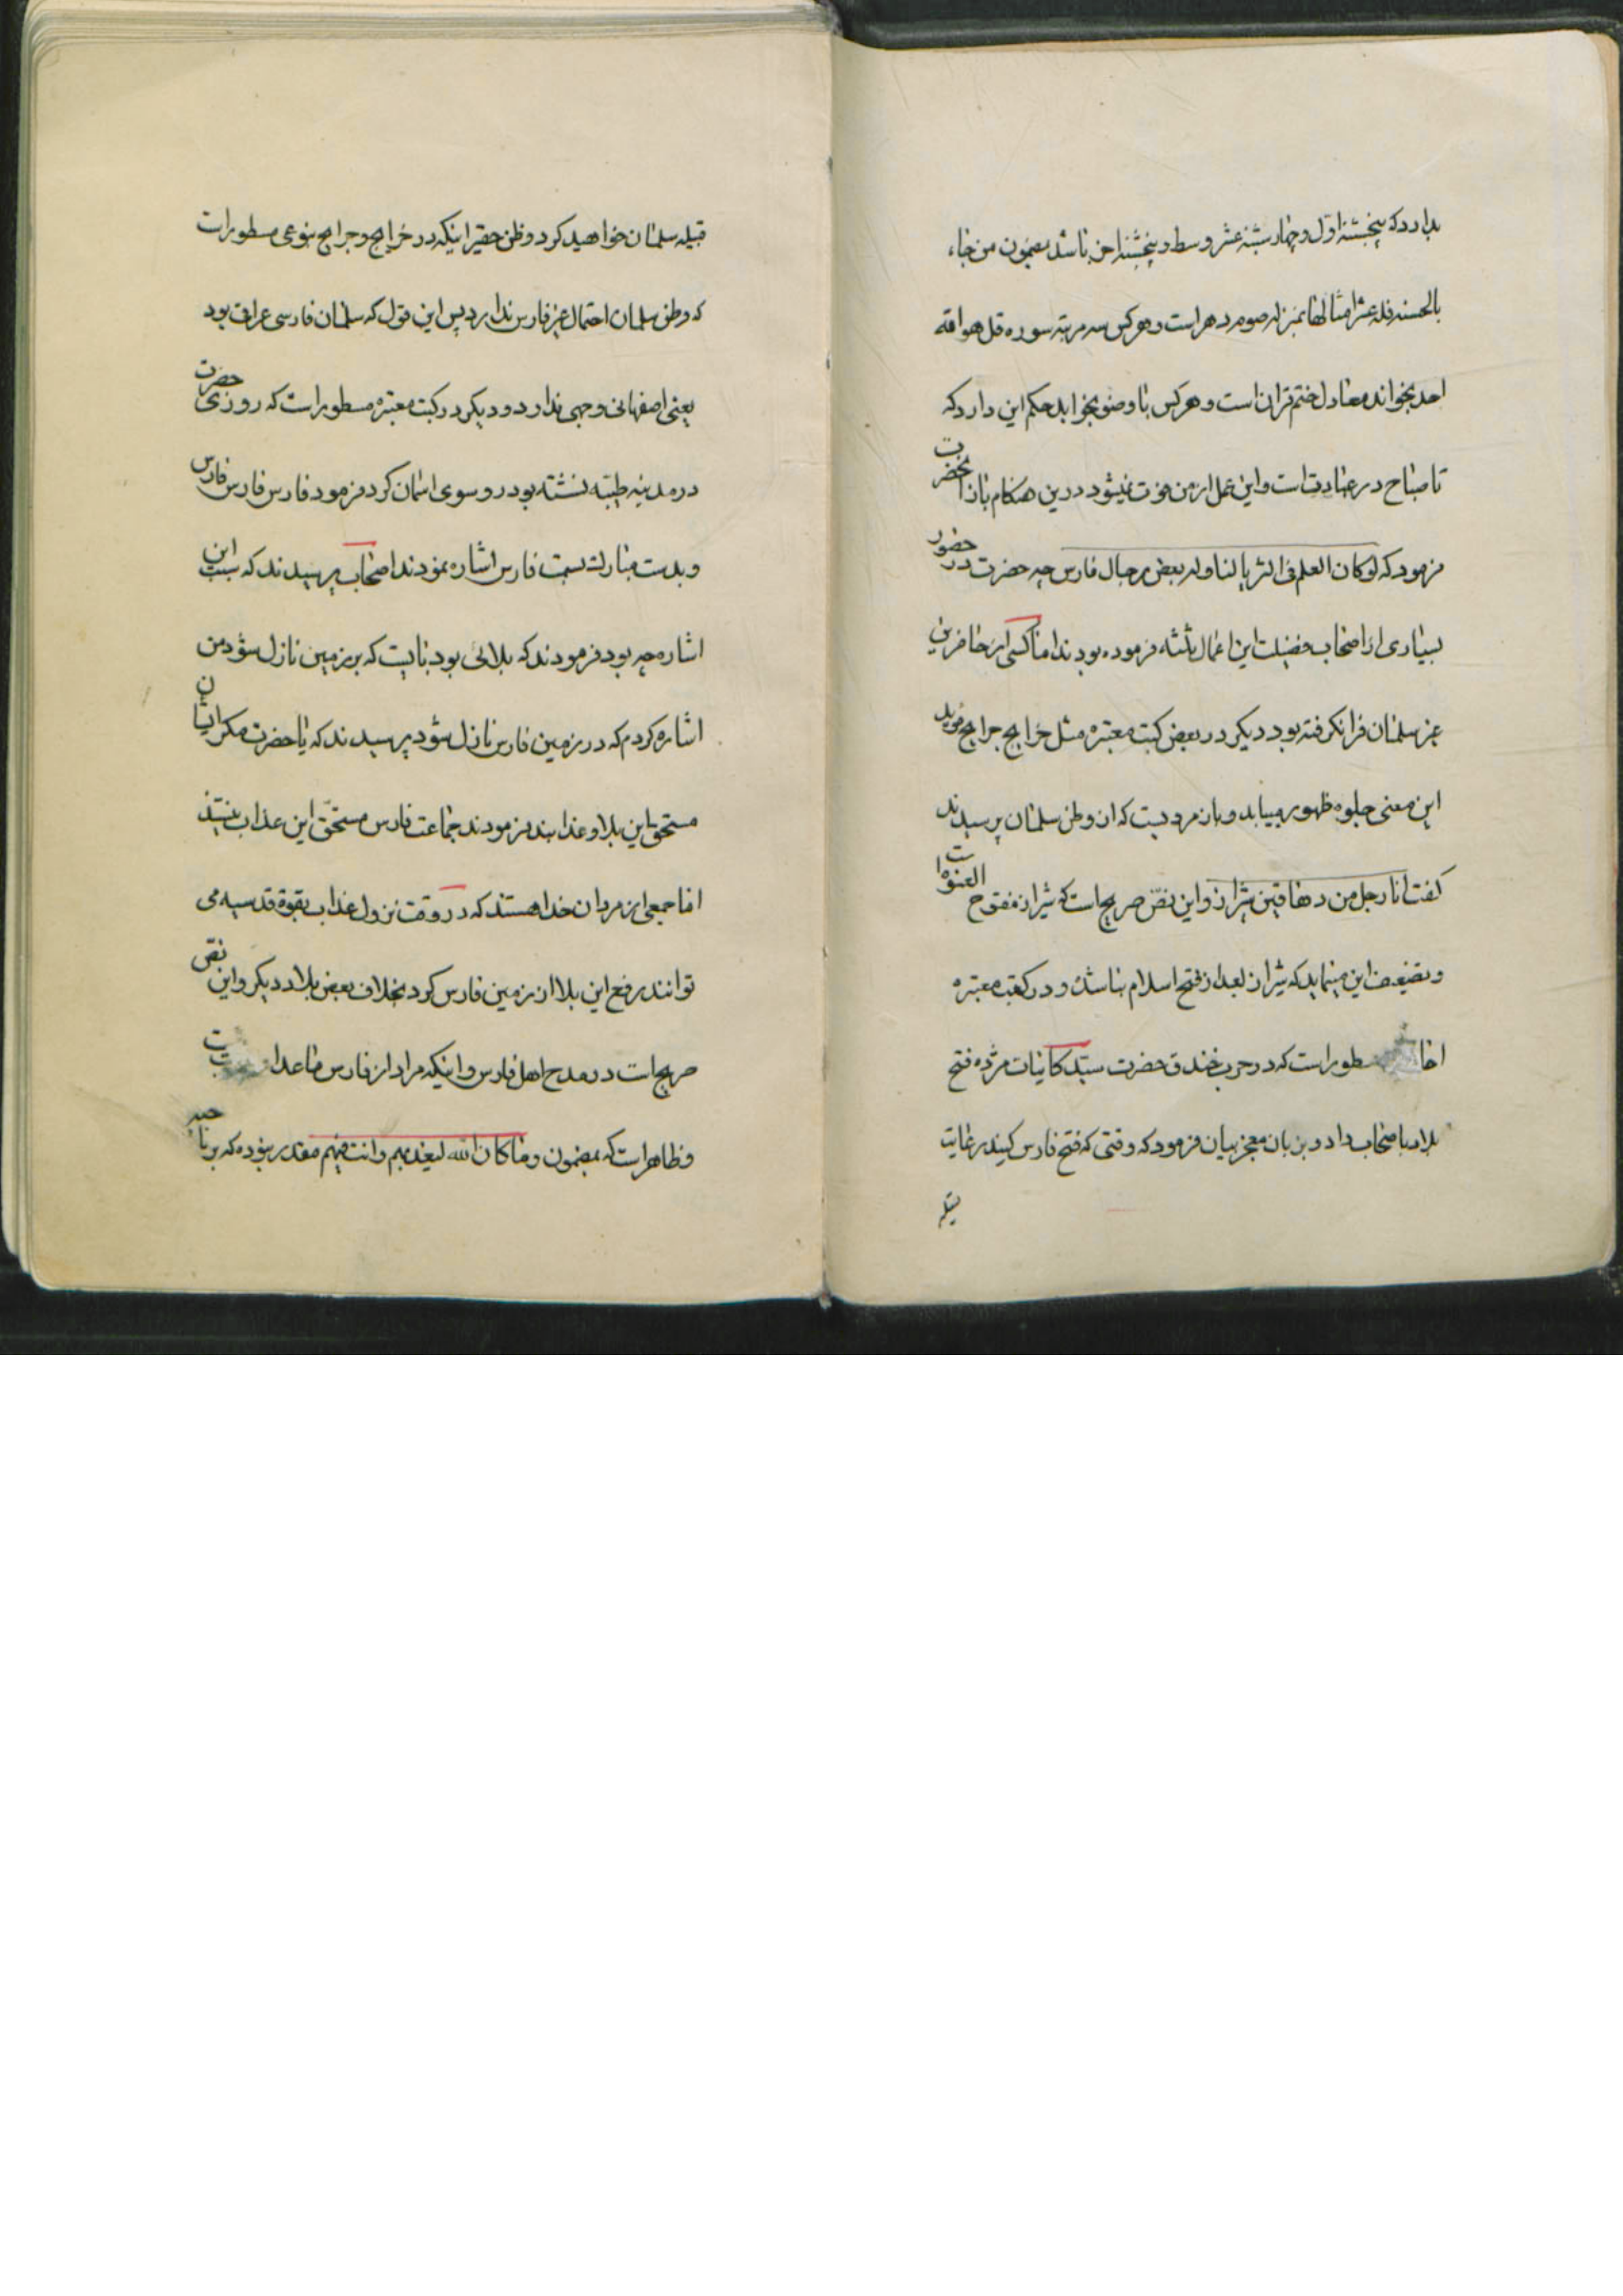 بدارد که پنجشنبه اول و چهارشنبه عشر وسط و پنجشنبه اخر باشد بمضمون من جاء
بالحسنه فله عشر امثالها بمنزله صوم دهر است و هر کس سه مرتبه سوره قل هو الله
احد بخواند معادل ختم قران است و هر کس با وضو بخوابد حکم این دارد که
تا صباح در عبادت است و این عمل از من فوت نمیشود درین هنکام بازا نحضرت
فرمود که لو کان العلم فی الثریا لتناوله بعض رجال فارس چه حضرت در حضور
بسیاری از اصحاب فضیلت این اعمال ثلثه فرموده بودند اما کسی از حاضرین
غیر سلمان فرا نکرفته بود دیکر در بعض کتب معتبره مثل خرایج جرایج مؤید
این معنی جلوه ظهور مییابد و بان مرویست که از وطن سلمان پرسیدند
کفت انا رجل من دهاقین شیراز و این نص صریح است که شیراز مفتوح العنوه است
و تضیف این مینماید که شیراز بعد از فتح اسلام بنا شده و در کتب معتبره
مسطور است که در حرب خندق حضرت سید کاینات مژده فتح
بلاد با صحاب داد و بزبان معجز بیان فرمود که وقتی که فتح فارس کنید رعایت
قبیله سلمان خواهید کرد و ظن حقیر اینکه در خرایج و جرایح بنوعی مسطور است
که وطن سلمان احتمال غیر فارس ندارد پس این قول که سلمان فارسی عراق بود
یعنی اصفهانی وجهی ندارد و دیکر در کتب معتبره مسطور است که روزی حضرت
در مدینه طیبه نشسته بود رو سوی اسمان کرد فرمود فارس فارس فارس
و بدست مبارک بسمت فارس اشاره نمودند اصحاب پرسیدند که سبب این
اشاره چه بود فرمودند که بلائی بود بنا نیست که بر زمین نازل شود من
اشاره کردم که در زمین فارس نازل شود پرسیدند که یا حضرت مکر ایشان
مستحق این بلا و عذابند فرمودند جماعت فارس مستحق این عذاب نیستند
اما جمعی از مردان خدا هستند که در وقت نزول عذاب بقوه قدسیه می
توانند رفع این بلا از زمین فارس کرد بخلاف بعض بلاد دیکر و این نص
صریح است در مدح اهل فارس و اینکه مراد از فارس ماعدا
و ظاهر است که بمضمون و ما کان الله لیعذبهم و انت فیهم مقدر بوده که بر نا